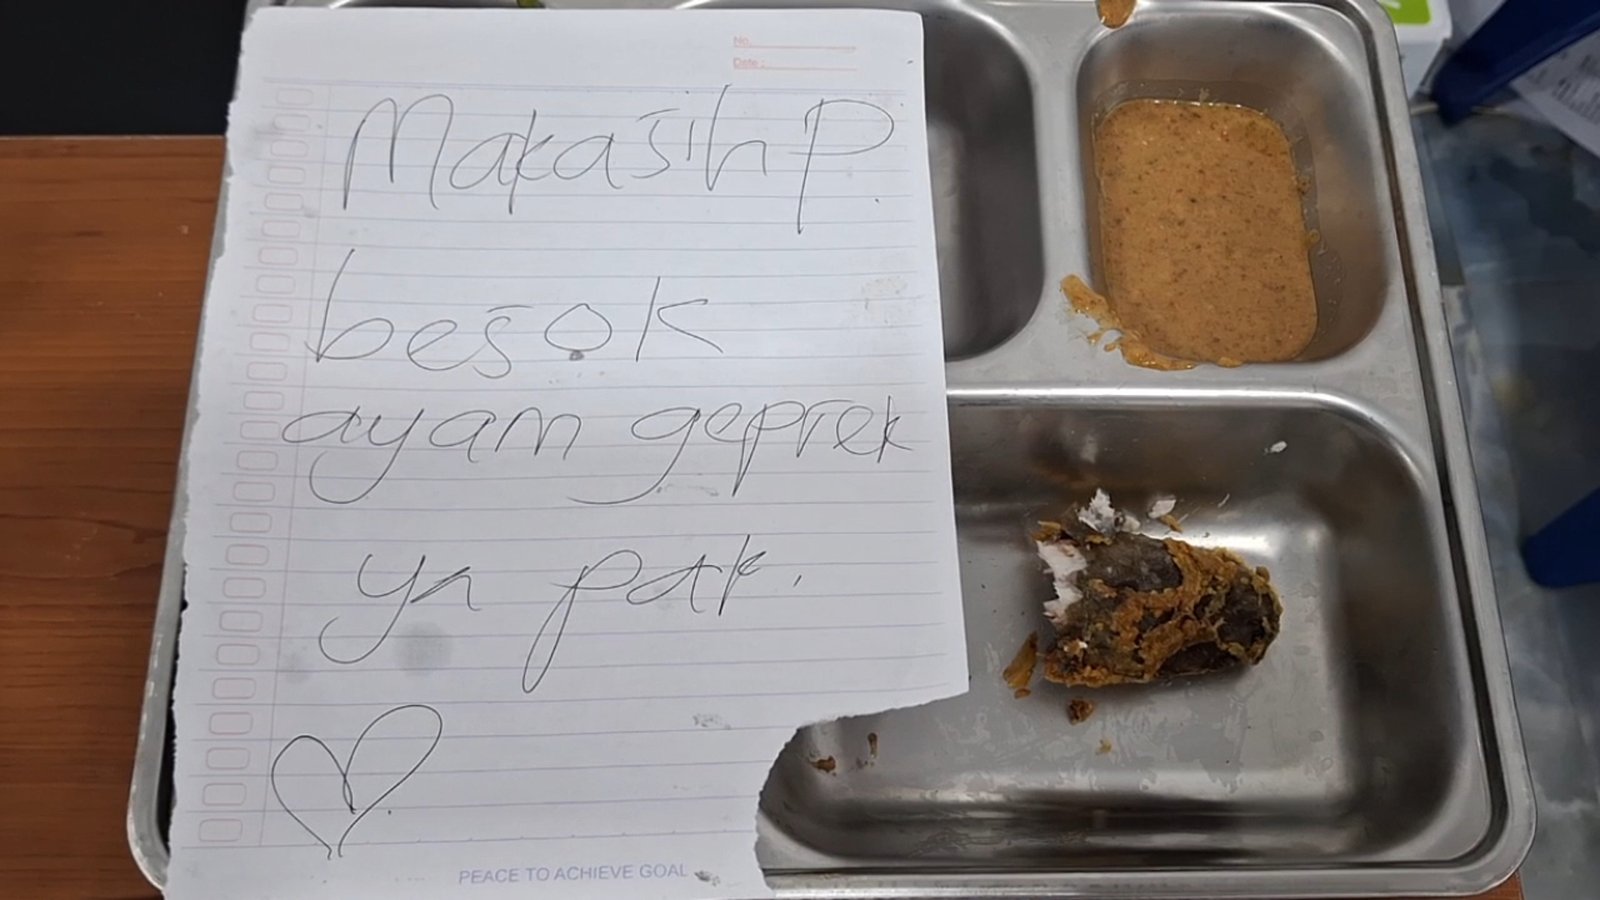 No.
Date :
Makasih P
besok
ayam geprek
ya pak.
PEACE TO ACHIEVE GOAL